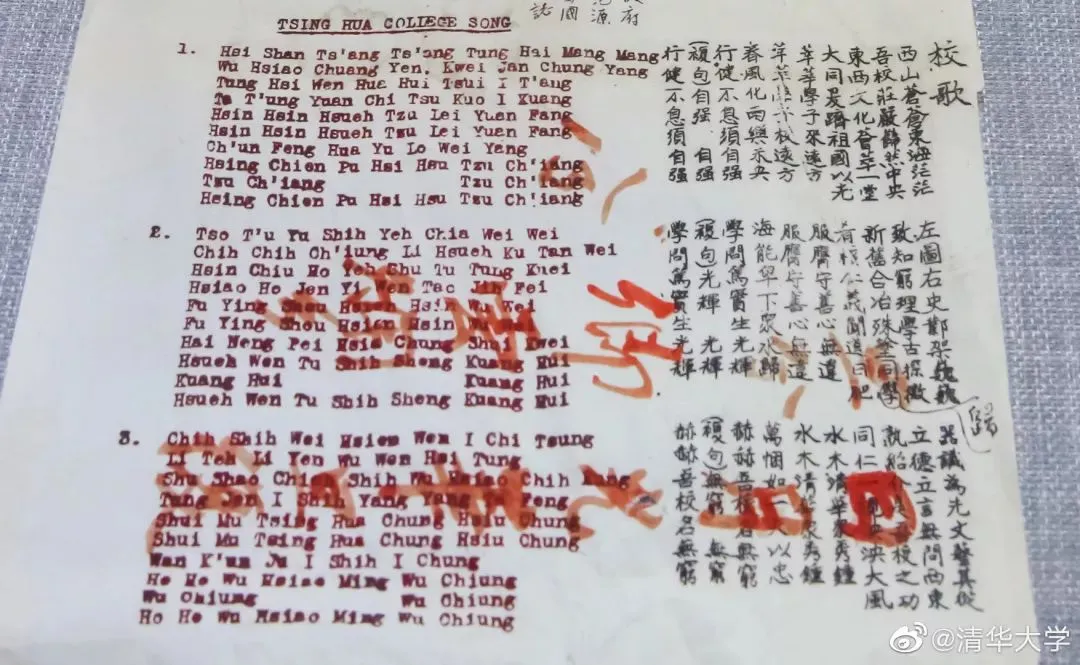 府
范源
誌
國
TSING HUA COLLEGE SONG
1. Hsi Shan Ts'ang Ts'ang Tung Hai Mang Mang
Wu Hsiao Chuang Yen, Kwei Jan Chung Yang
Tung Hsi Wen Hua Hui Tsui I T'ang
Ta T'ung Yuan Chi Tsu Kuo I Kuang
Hsin Hsin Hsueh Tzu Lei Yuan Fang
Hsin Hsin Hsueh Tzu Lei Yuan Fang
Ch'un Feng Hua Yu Lo Wei Yang
Hsing Chien Pu Hsi Hsu Tzu Ch'iang
Tzu Ch'iang Tzu Ch'iang
Hsing Chien Pu Hsi Hsu Tzu Ch'iang
2. Tso T'u Yu Shih Yeh Chia Wei Wei
Chih Chih Ch'iung Li Hsueh Ku Tan Wei
Hsin Chiu Ho Yeh Shu Tu Tung Kuei
Hsiao Ho Jen Yi Wen Tao Jih Fei
Fu Ying Shou Hsien Hsin Wu Wei
Fu Ying Shou Hsien Hsin Wu Wei
Hai Neng Pei Hsia Chung Shui Kwei
Hsueh Wen Tu Shih Sheng Kuang Hui
Kuang Hui Kuang Hui
Hsueh Wen Tu Shih Sheng Kuang Hui
3. Chih Shih Wei Hsien Wen I Chi Tsung
Li Teh Li Yen Wu Wen Hsi Tung
Shu Shao Chieh Shih Wu Hsiao Chih Kung
Tung Jen I Shih Yang Yang Ta Feng
Shui Mu Tsing Hua Chung Hsiu Chung
Shui Mu Tsing Hua Chung Hsiu Chung
Wan K'un Ju I Shih I Chung
Ho Ho Wu Hsiao Ming Wu Chiung
Wu Chiung Wu Chiung
Ho Ho Wu Hsiao Ming Wu Chiung
校歌
西山蒼蒼東海茫茫
吾校莊嚴巋然中央
東西文化薈萃一堂
大同爰躋祖國以光
莘莘學子來遠方
莘莘學子來遠方
春風化雨樂未央
行健不息須自强
(複句自强 自强
行健不息須自强
左圖右史鄴架巍巍
致知窮理學古探微
新舊合冶殊途同學
歸
肴核仁義聞道日肥
服膺守善心無違
服膺守善心無違
海能卑下衆水歸
學問篤實生光輝
(複句光輝 光輝
學問篤實生光輝
器識為先文藝其從
立德立言無問西東
孰紹介是吾校之功
同仁一視泱泱大風
水木清華衆秀鐘
水木清華衆秀鐘
萬悃如一矢以忠
赫赫吾校名無窮
(複句無窮 無窮
赫赫吾校名無窮
@清华大学